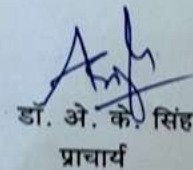 डॉ. ओ. के. सिंह
प्राचार्य